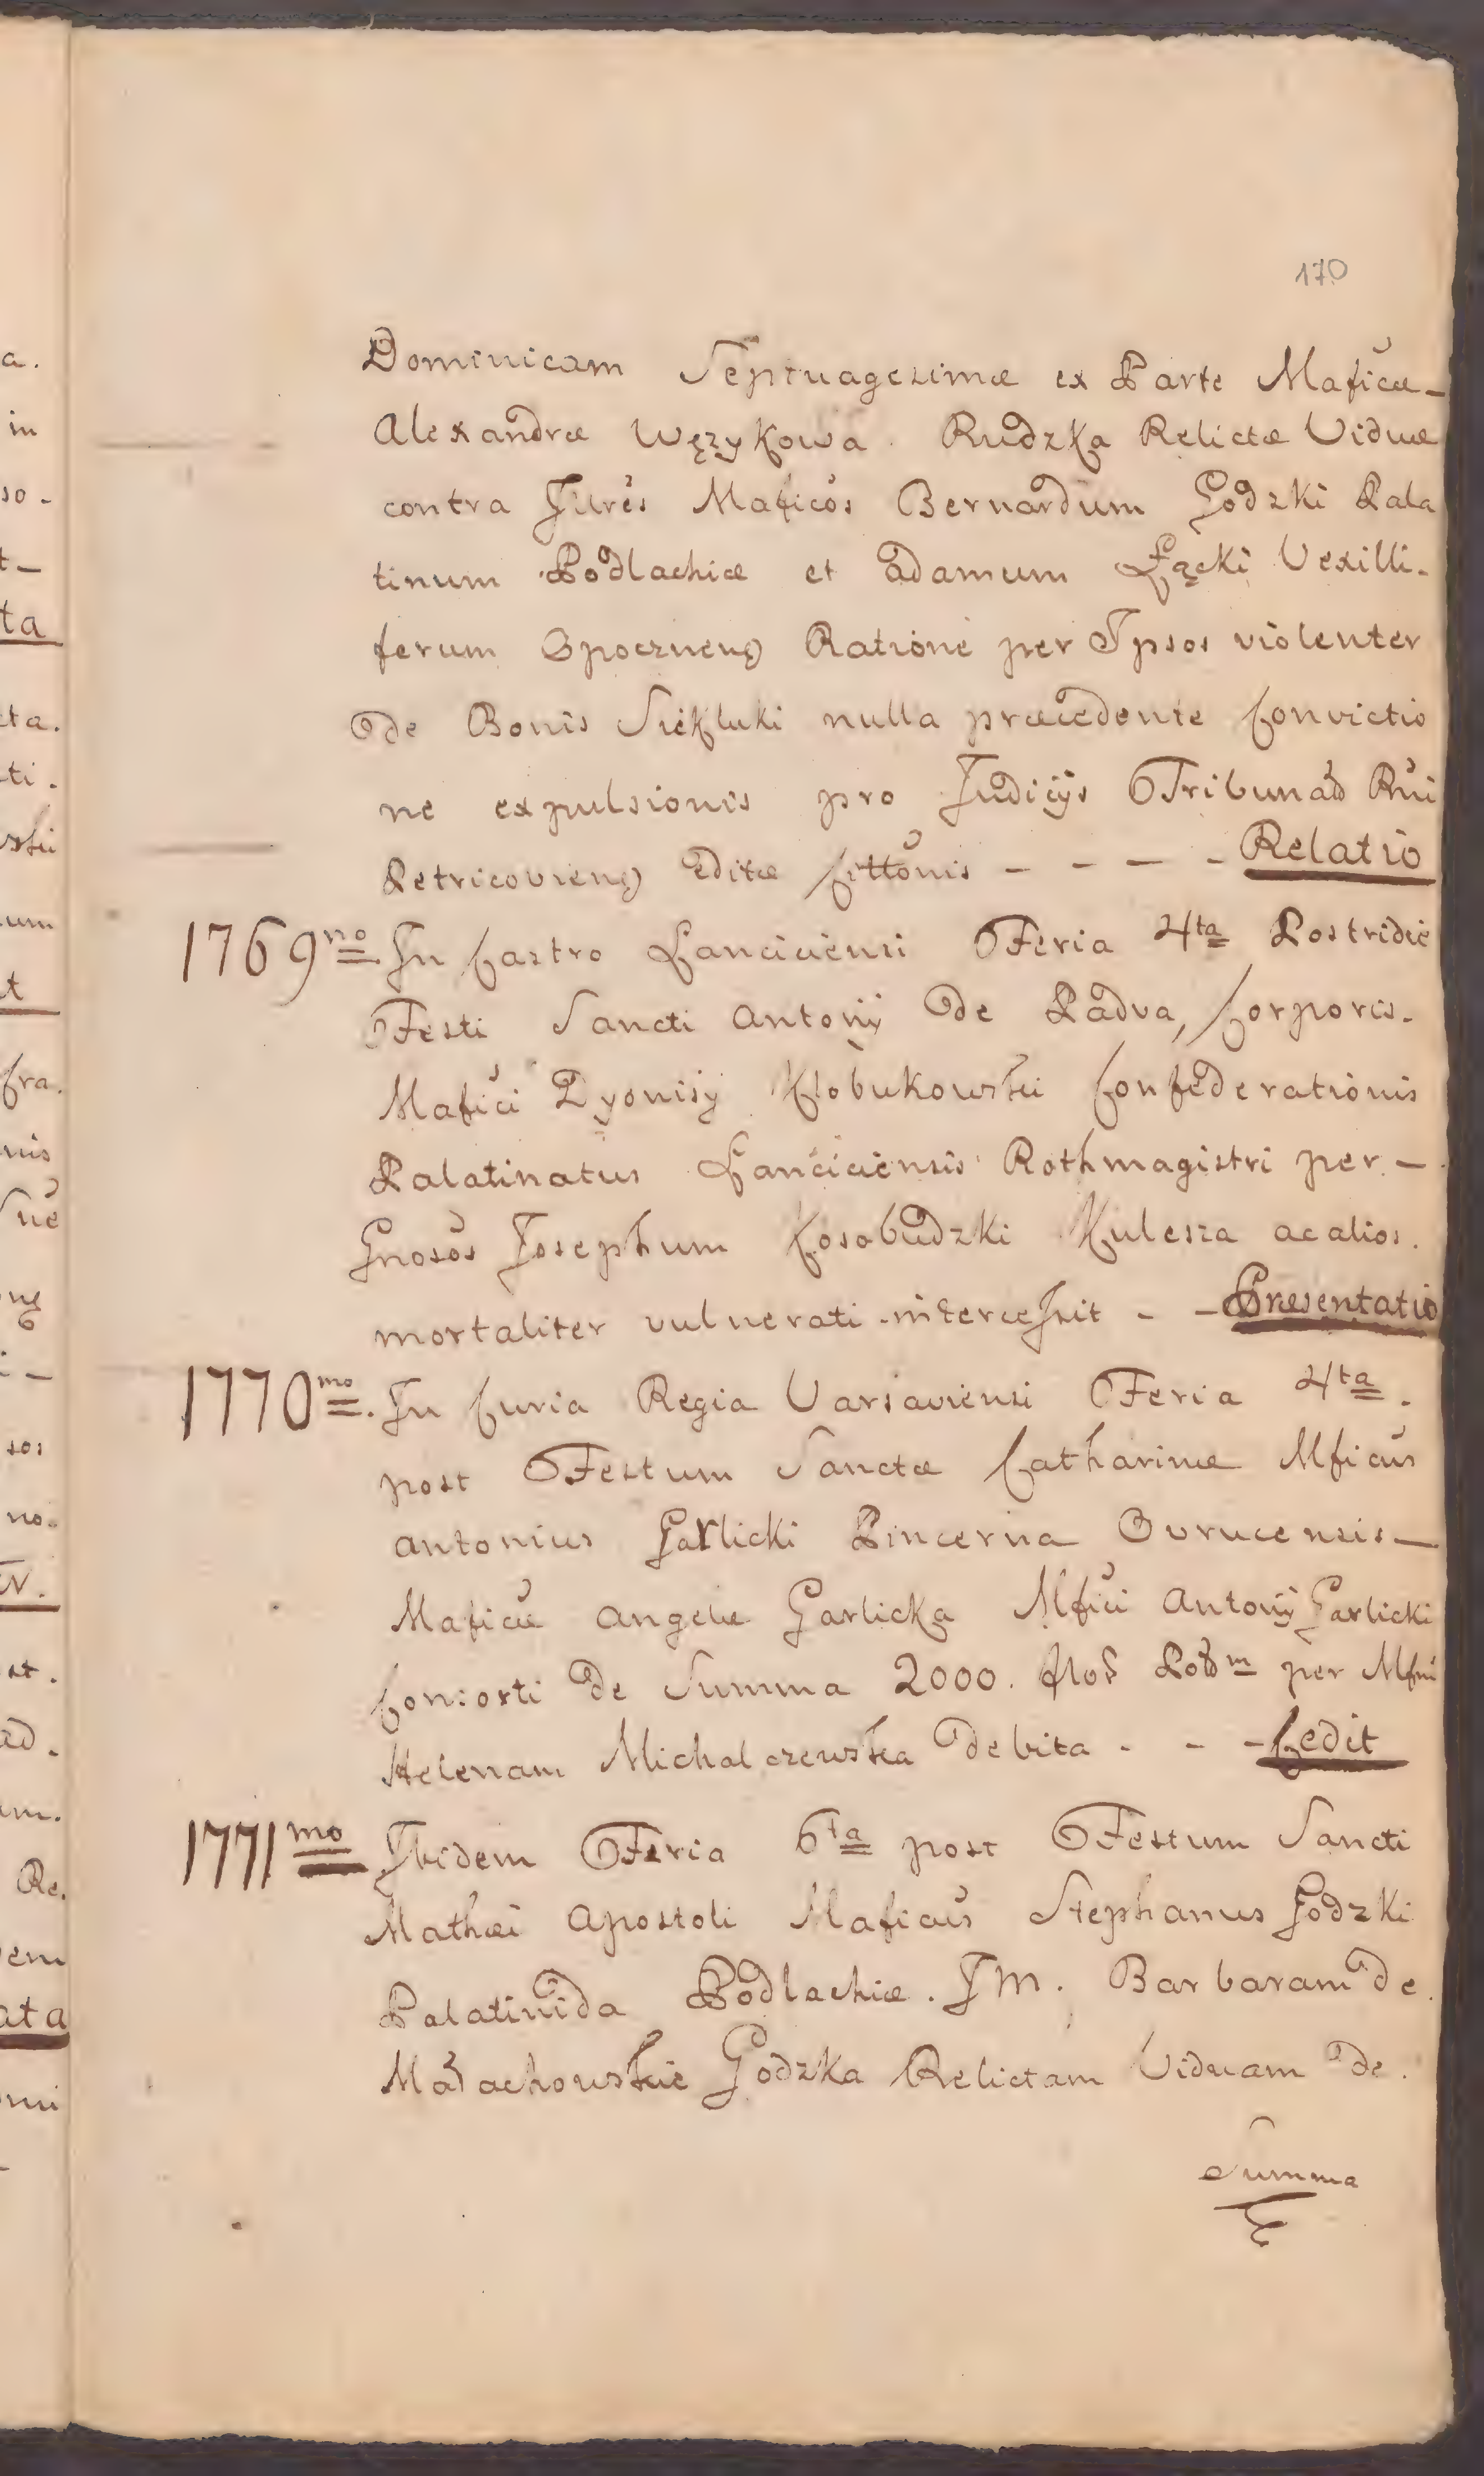 170
Dominicam Septuagesimæ ex Parte Maficæ
Alexandræ Wężykowa Rudzka Relictæ Viduæ
contra Illres Maficos Bernardum Godzki Pala
tinum Podlachiæ et Adamum Łącki Vexilli-
ferum Opocznens Ratione per Ipsos violenter
de Bonis Siekluki nulla præcedente Convictio
ne expulsionis pro Judicijs Tribunal Rni
Petricoviens Editæ Cittonis - - - - Relatio
1769no In Castro Lanciciensi Feria 4ta Postridie
Festi Sancti Antonij de Padva, Corporis
Mafici Dyonisy Kłobukowski Confederationis
Palatinatus Lanciciensis Rothmagistri per -
Gnosos Josephum Kosobudzki Kulesza ac alios
mortaliter vulnerati intercessit - - Presentatio
1770mo. In Curia Regia Varsaviensi Feria 4ta.
post Festum Sanctæ Catharinæ Mficus
Antonius Garlicki Pincerna Ovrucensis -
Maficæ Angelæ Garlicka Mfici Antonij Garlicki
Consorti de Summa 2000. flor Polm per Mfm
Helenam Michalczewska debita - - - Cedit
1771mo Ibidem Feria 6ta post Festum Sancti
Mathæi Apostoli Maficus Stephanus Godzki
Palatinida Podlachiæ. J M. Barbaram de
Małachowskie Godzka Relictam Viduam de.
Summa
a.
in
so -
t -
ta
cta.
ti.
um
t
fra.
nis
sos
no.
st.
ad.
am.
Re.
em
ata